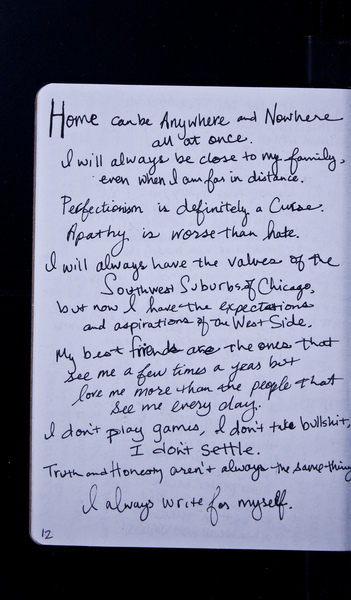 Home can be Anywhere and Nowhere
all at once.
I will always be close to my family,
even when I am far in distance.
Perfectionism is definitely a Curse.
Apathy is worse than hate.
I will always have the values of the
Southwest Suburbs of Chicago,
but now I have the expectations
and aspirations of the West Side.
My best friends are the ones that
see me a few times a year but
love me more than the people that
see me every day.
I don't play games, I don't take bullshit,
I don't settle.
Truth and Honesty aren't always the same thing
I always write for myself.
12